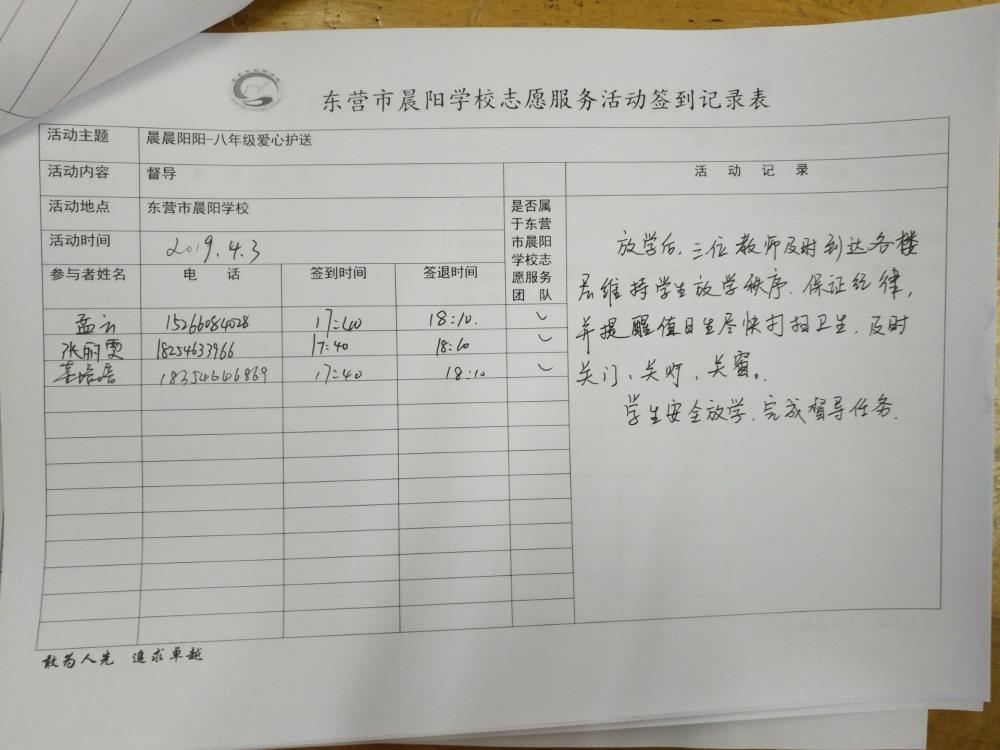 东营市晨阳学校志愿服务活动签到记录表
活动主题 晨晨阳阳-八年级爱心护送
活动内容 督导
活动地点 东营市晨阳学校
活动时间 2019.4.3
参与者姓名 电 话 签到时间 签退时间 是否属于东营市晨阳学校志愿服务团 队
孟云 15266084028 17:40 18:10. ✓
张丽雯 18254633966 17:40 18:10 ✓
18354646869 17:40 18:10 ✓
活 动 记 录
放学后,三位教师及时到达各楼
层维持学生放学秩序.保证纪律,
并提醒值日生尽快打扫卫生.及时
关门、关灯、关窗。
学生安全放学.完成督导任务.
敢为人先 追求卓越